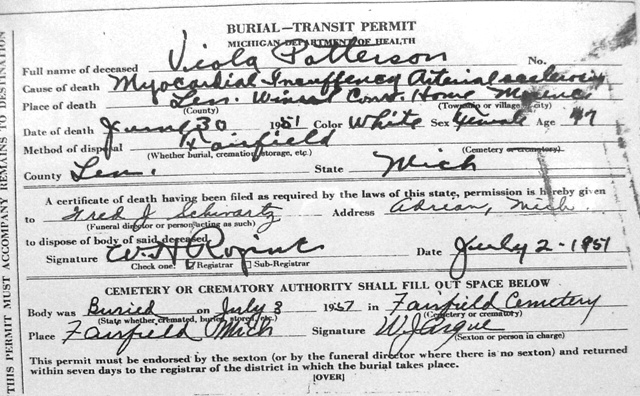 BURIAL—TRANSIT PERMIT
MICHIGAN DEPARTMENT OF HEALTH
Full name of deceased Viola Patterson No.
Cause of death Myocardial Insuffency Arterialsclerosis
Place of death Len. Conv. Home Morenci
(County) (Township or village, city)
Date of death June 30 1951 Color White Sex Female Age 47
Method of disposal Fairfield
(Whether burial, cremation, storage, etc.) (Cemetery or crematory)
County Len. State Mich
A certificate of death having been filed as required by the laws of this state, permission is hereby given
to Fred J Schwartz Address Adrian, Mich
(Funeral director or person acting as such)
to dispose of body of said deceased.
Signature W. H. Date July 2-1951
Check one: Registrar Sub-Registrar
CEMETERY OR CREMATORY AUTHORITY SHALL FILL OUT SPACE BELOW
Body was Buried on July 3 1957 in Fairfield Cemetery
(State whether cremated, buried, stored, etc.) (Cemetery or crematory)
Place Fairfield Mich Signature W J Argue
(Sexton or person in charge)
This permit must be endorsed by the sexton (or by the funeral director where there is no sexton) and returned
within seven days to the registrar of the district in which the burial takes place.
[OVER]
THIS PERMIT MUST ACCOMPANY REMAINS TO DESTINATION